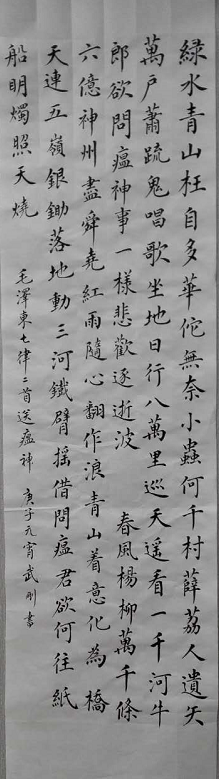 綠水青山枉自多華佗無奈小蟲何千村薜荔人遺矢
萬戶蕭疏鬼唱歌坐地日行八萬里巡天遥看一千河牛
郎欲問瘟神事一樣悲歡逐逝波 春風楊柳萬千條
六億神州盡舜堯紅雨隨心翻作浪青山着意化為橋
天連五嶺銀鋤落地動三河鐵臂摇借問瘟君欲何往紙
船明燭照天燒
毛澤東七律二首送瘟神 庚子元宵武刚書